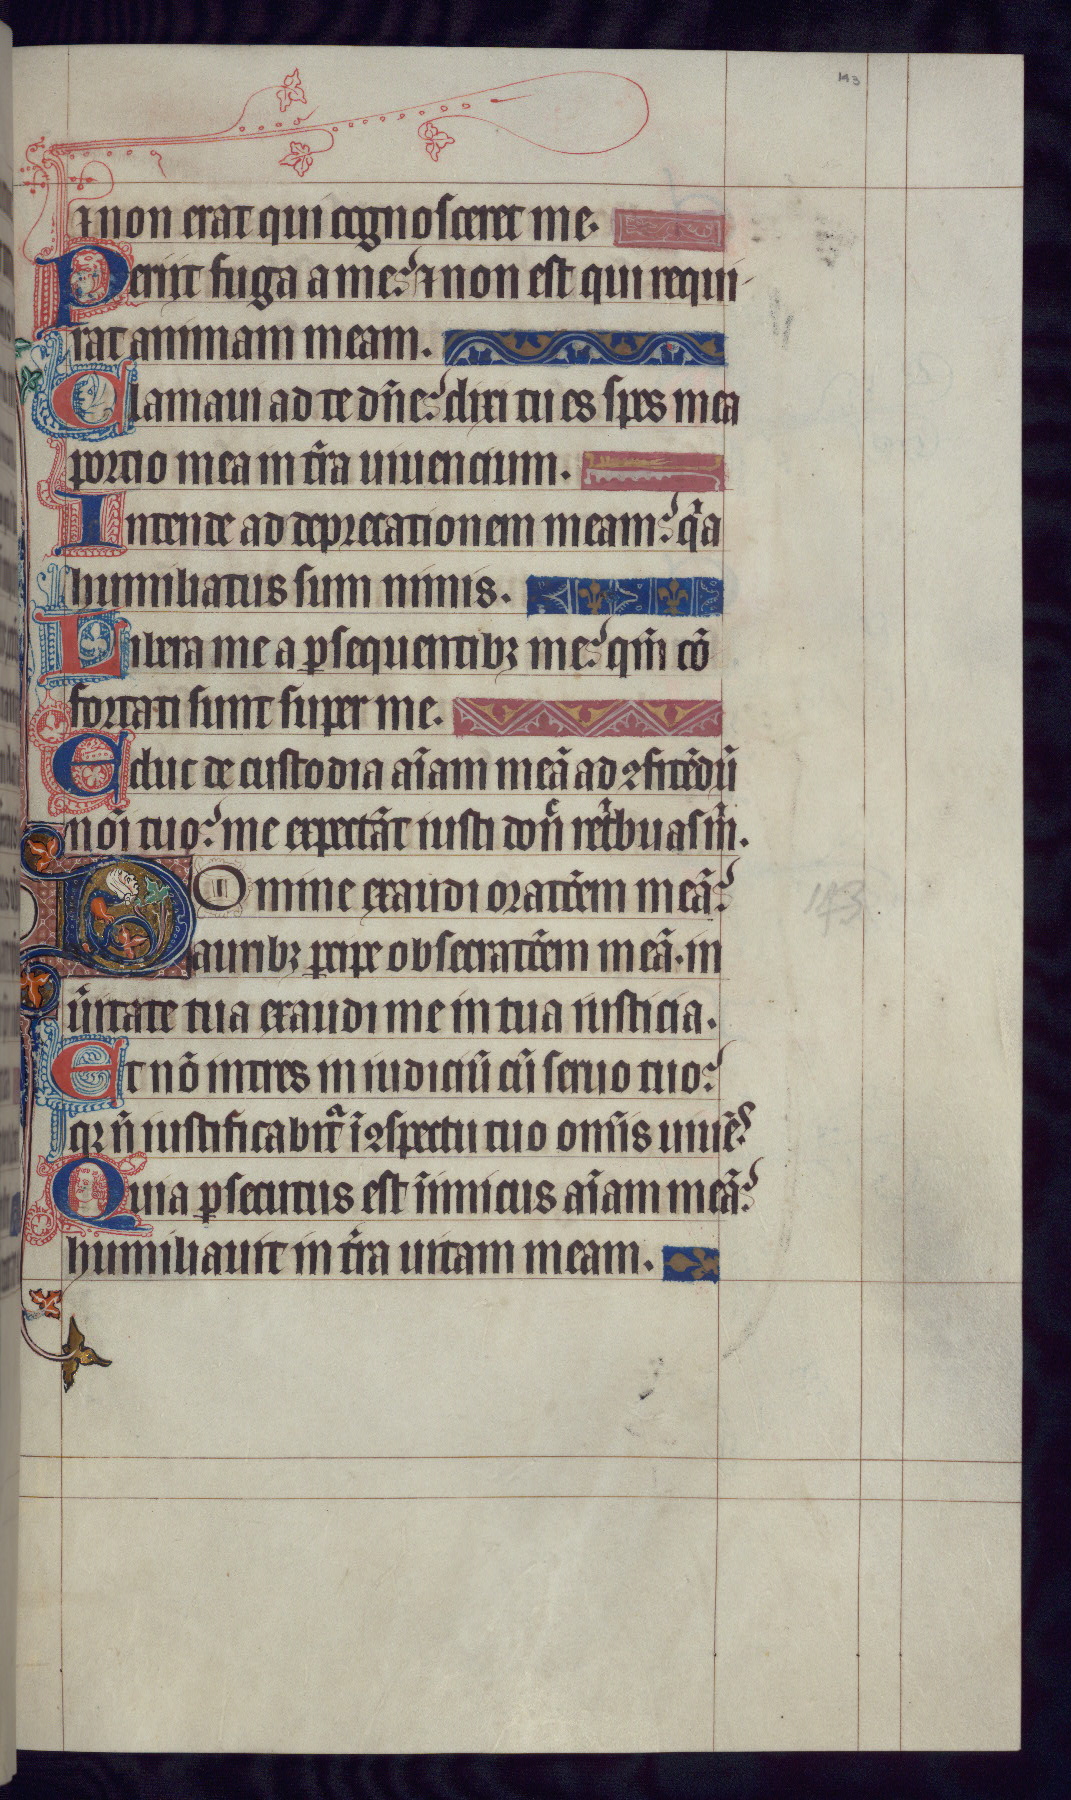 143
⁊ non erat qui cognosceret me.
Periit fuga a me: ⁊ non est qui requi-
rat animam meam.
Clamaui ad te dñe: dixi tu es spes mea
portio mea in tr̃a uiuencium.
Intende ad deprecationem meam: qͥa
humiliatus sum nimis.
Libera me a ꝑsequentibꝫ me: qm̃ cõ
fortati sunt super me.
Educ de custodia aĩam meã ad ꝯfitẽdũ
nõi tuo: me expectãt iusti don̄ retͥbuas m̃.
Domine exaudi oratiõem meã:
auribꝫ ꝑcipe obsecratiõem meã. in
ũitate tua exaudi me in tua iusticia.
Et nõ intres in iudiciũ cũ seruo tuo:
qꝫ ñ iustificabit᷑ ĩ ꝯspectu tuo omñis uiuẽs:
Quia ꝑsecutus est ĩimicus aĩam meã:
humiliauit in tr̃a uitam meam.
143